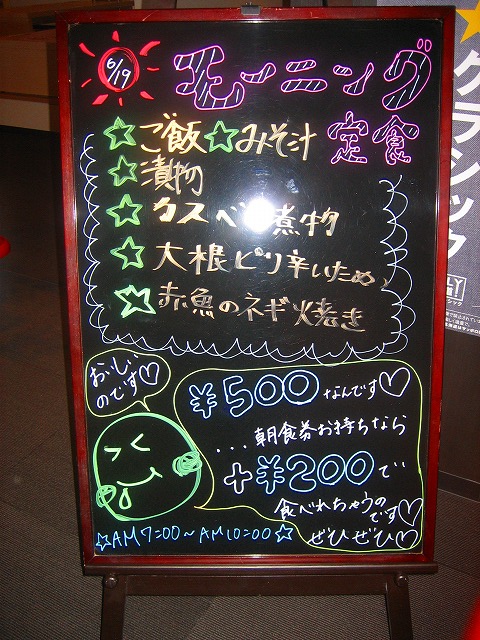 6/19
モーニング
定食
☆ご飯☆みそ汁
☆漬物
☆カスベ煮物
☆大根ピリ辛いため
☆赤魚のネギ焼き
おいしい
のです♡
¥500なんです♡
...朝食券お持ちなら
+¥200で
食べれちゃうの
です♡
ぜひぜひ♡
☆AM7:00~AM10:00☆
クラシック